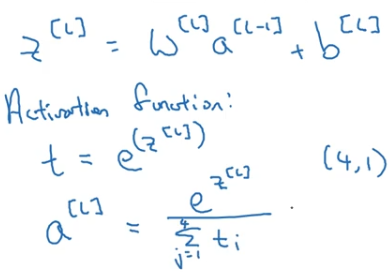 z^[L] = W^[L] a^[L-1] + b^[L]
Activation function:
t = e^(z^[L]) (4,1)
a^[L] = e^z^[L] / ∑_{j=1}^{4} t_i